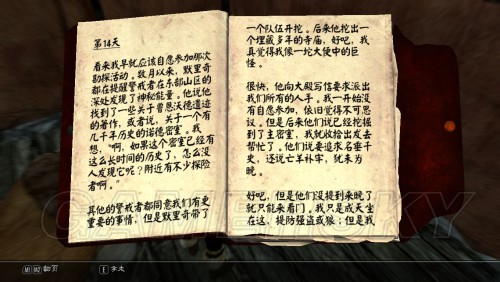 第14天
看来我早就应该自愿参加那次
勘探活动。数月以来，默里奇
都在提醒警戒者在东部山区的
深处发现了神秘能量。他说他
找到了一些关于曾恩沃德遗迹
的著作，或者说，关于一个有
几千年历史的诺德密室。我
想，“啊，如果这个密室已经有
这么长时间的历史了，怎么没
人发现它呢？附近有不少探险
者啊。”
其他的警戒者都同意我们有更
重要的事情，但是默里奇带了
一个队伍开挖。后来他挖出一
个埋藏多年的寺庙，好吧，我
真觉得我像一坨大便中的巨
怪。
很快，他向大殿写信要求派出
我们所有的人手。我一开始没
有自愿参加，依旧觉得不可思
议，但是后来他们说已经挖掘
到了主密室，我就收拾出发去
帮忙了。他们说要追求名垂千
史，还说亡羊补牢，犹未为
晚。
好吧，但是他们没提到来晚了
就只能来看门。我只是成天坐
在这，提防强盗或狼；但是我
GAMERSKY
M1 M2 翻页
E 拿走